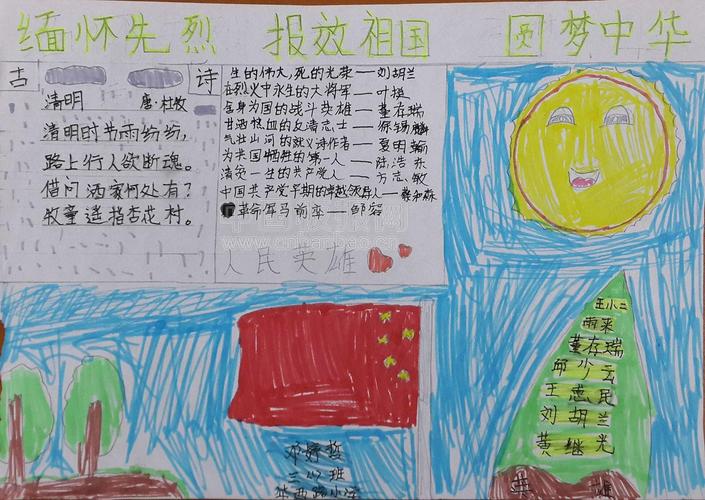 缅怀先烈 报效祖国 圆梦中华
古 诗
清明 唐·杜牧
清明时节雨纷纷,
路上行人欲断魂。
借问酒家何处有?
牧童遥指杏花村。
生的伟大,死的光荣——刘胡兰
在烈火中永生的大将军——叶挺
舍身为国的战斗英雄——董存瑞
甘洒热血的反清志士——徐锡麟
气壮山河的就义诗作者——夏明翰
为共国牺牲的第一人——陆浩东
清贫一生的共产党人——方志敏
中国共产党早期的卓越领导人——蔡和森
革命军马前卒——邹容
人民英雄
王小二
雨来
董存瑞
邱少云
王惠民
刘胡兰
黄继光
英雄
三(2)班